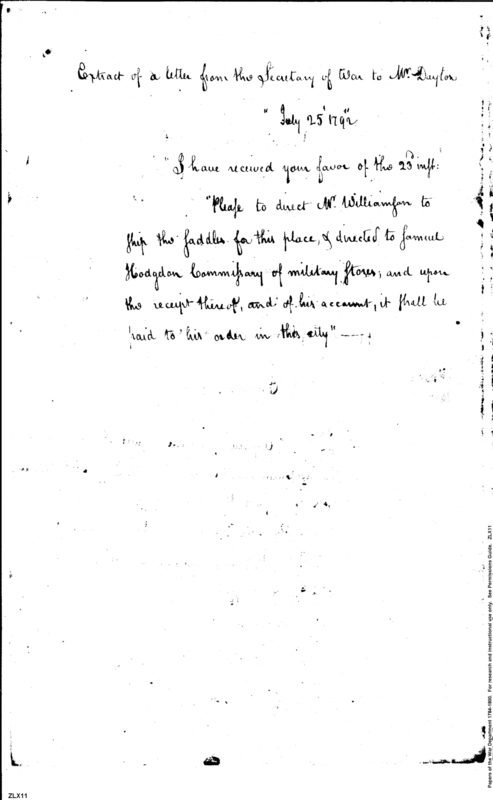 Extract of a letter from the Secretary of War to Mr. Dayton
"July 25th 1792"
"I have received your favor of the 23d inst:
"Please to direct Mr. Williamson to
ship the saddles for this place, & directed to Samuel
Hodgdon Commissary of military stores; and upon
the receipt thereof, and of his account, it shall be
paid to his order in this city" —
Papers of the War Department 1784-1800. For research and instructional use only. See Permissions Guide. ZLX11
ZLX11